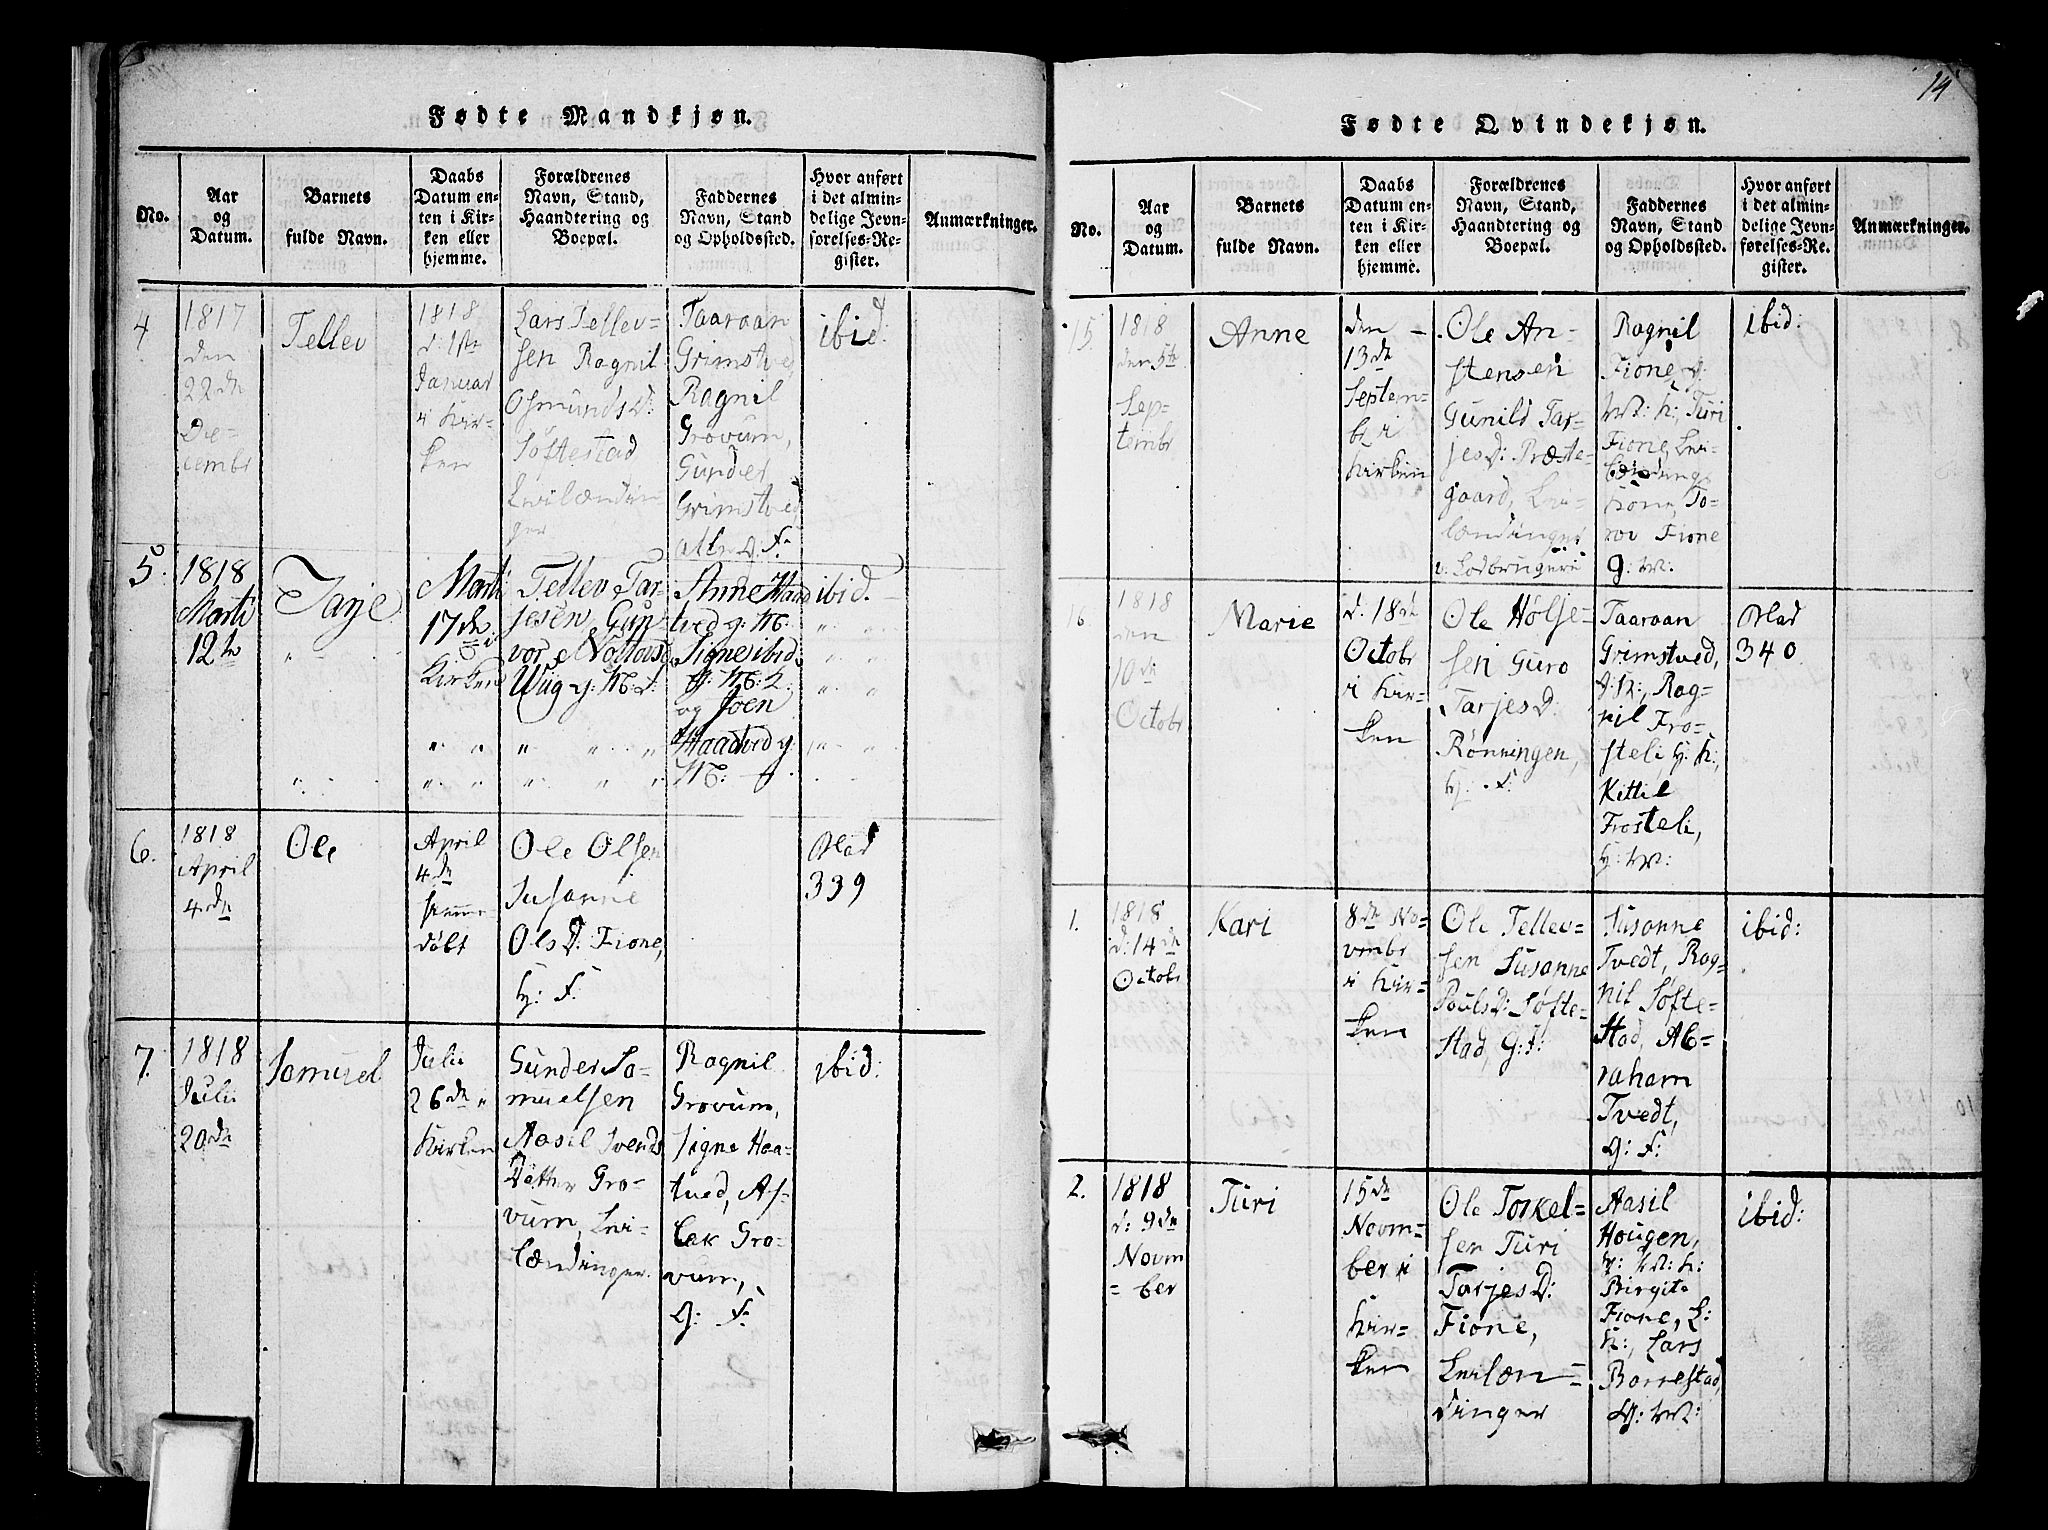 Fødte Mandkjøn.
No.
Aar
og
Datum.
Barnets
fulde Navn.
Daabs
Datum en-
ten i Kir-
ken eller
hjemme.
Forældrenes
Navn, Stand,
Haandtering og
Boepæl.
Faddernes
Navn, Stand
og Opholdssted.
Hvor anført
i det almin-
delige Jevn-
førelses-Re-
gister.
Anmærkninger.
4
1817
den
22de
De-
cembr
Tellev
1818
d: 1ste
Januar
i Kir-
ken
Lars Tellev=
sen Ragnil
Osmunds D:
Søftestad
Leilændin
ger
Taaraan
Grimstved
Ragnil
Grovum,
Gunder
Grimstved
alle g: F:
ibid:
5.
1818
Marti
12te
Tarje
Marti
17de
i
Kirken
Tellev Tar-
jesen, Gun
vor Nottos
Wiig g:
Anne Haad
tved g:
Signe ibid.
og Joen
Haadtved g:
ibid.
6.
1818
April
4de
Ole
April
4de
hjemme-
døbt
Ole Olsen
Susanne
Ols D: Fione,
g: F:
Blad
339
7.
1818
Julii
20de
Samuel
Julii
26de i
Kirken
Gunder Sa-
muelsen
Aasil Svends
Datter Gro-
vum, Lei-
lændinger.
Ragnil
Grovum,
Signe Haa-
tved, As-
lak Gro-
vum,
g: F:
ibid:
14
Fødte Qvindekjøn.
No.
Aar
og
Datum.
Barnets
fulde Navn.
Daabs
Datum en-
ten i Kir-
ken eller
hjemme.
Forældrenes
Navn, Stand,
Haandtering og
Boepæl.
Faddernes
Navn, Stand
og Opholdssted.
Hvor anført
i det almin-
delige Jevn-
førelses-Re-
gister.
Anmærkninger.
15
1818
den 5te
Sep-
tembr
Anne
den
13de
Septem-
br i
Kirken
Ole An-
stensen
Gunild Tar-
jes D: Præste-
gaard, Lei-
lændinger
Ragnil
Fione,
Turi
Fione,
To-
rov Fione
ibid:
16
1818
den
10de
Octobr
Marie
d. 18de
Octobr
i Kir-
ken
Ole Hølje-
sen Guro
Tarjes D:
Rønningen,
g: F:
Taaraan
Grimstved,
Rag-
nil Fro-
steli, g: K:,
Kittil
Frosteli,
g: M:
Blad
340
1.
1818
d: 14de
Octobr
Kari
8de No-
vembr
i Kir-
ken
Ole Tellev=
sen Susanne
Pouls D: Søfte-
stad, G: F:
Susanne
Tvedt, Rag-
nil Søfte-
stad, Ab-
raham
Tvedt,
g: F:
ibid:
2.
1818
d: 9de
Novm
=ber
Turi
15de
Novm-
ber i
Kir-
ken
Ole Torkel=
sen Turi
Tarjes D:
Fione,
Leilæn=
dinger
Aasil
Hougen,
Birgite
Fione, L:
K:, Lars
Borrestad,
g: M:
ibid: